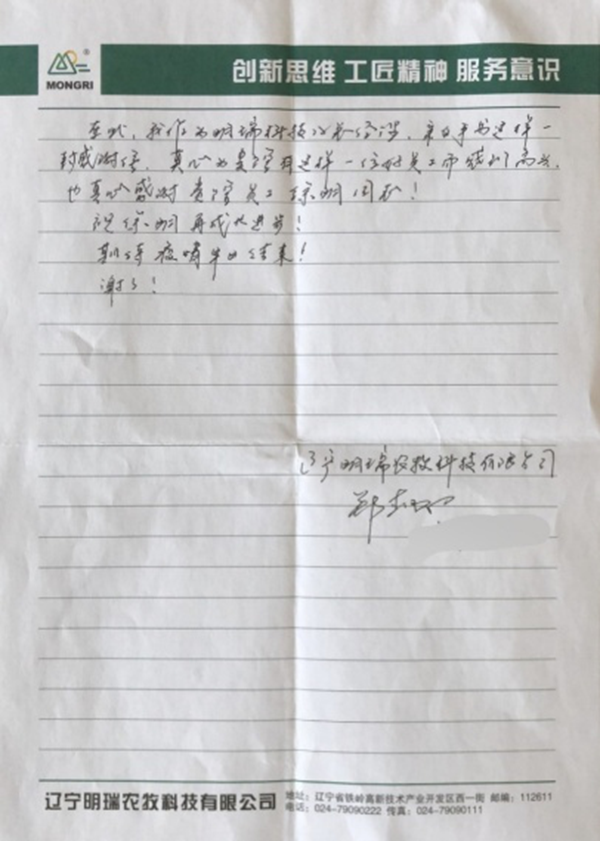 MONGRI
创新思维 工匠精神 服务意识
至此,我作为明瑞科技总经理,亲自手书这样一
封感谢信,真心为贵馆有这样一位好员工而感到高兴,
也真心感谢贵馆员工
再成长进步!
期待疫情早日结束!
谢谢!
辽宁明瑞农牧科技有限公司
郑
辽宁明瑞农牧科技有限公司
地址:辽宁省铁岭高新技术产业开发区西一街 邮编:112611
电话:024-79090222 传真:024-79090111